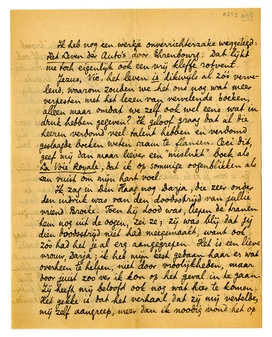 Ik heb nog een werkje onverrichterzake weggelegd:
Het Leven der Auto's door Ehrenbourg. Dat lijkt
me toch eigenlijk ook een vrij kleffe rotvent.
Jezus, Vic, het leven is dikwijls al zóó verve-
lend, waarom zouden we het ons nog wat meer
verpesten met het lezen van vervelende boeken,
alleen maar omdat we zelf ook wel eens zooiets in
druk hebben gegeven? Ik geloof graag dat al die
heeren verdomd veel talent hebben en verdomd
geslaagde boeken weten saam te flansen. Ceci dit,
geef mij dan maar liever een "mislukt" boek als
La Voie Royale, dat ik op sommige oogenblikken als
een vuist om mijn hart voel.
Ik zag in den Haag nog Darja, die zeer onder
den indruk was van den doodsstrijd van jullie
vriend Kroské. Toen hij dood was, liepen de tranen
hem nog uit de oogen, zei ze; zij was blij dat jij
dien doodsstrijd niet had meegemaakt, want ook
zóó had het je al erg aangegrepen. Het is een lieve
vrouw, Darja; ik heb mijn best gedaan haar er wat
overheen te helpen, niet door vroolijkheden, maar
door juist zoo ver ik kon op het geval in te gaan.
Zij heeft mij beloofd ook nog wat hier te komen.
Het gekke is dat het verhaal dat zij mij vertelde,
mij zelf aangreep, meer dan ik noodig vond het op